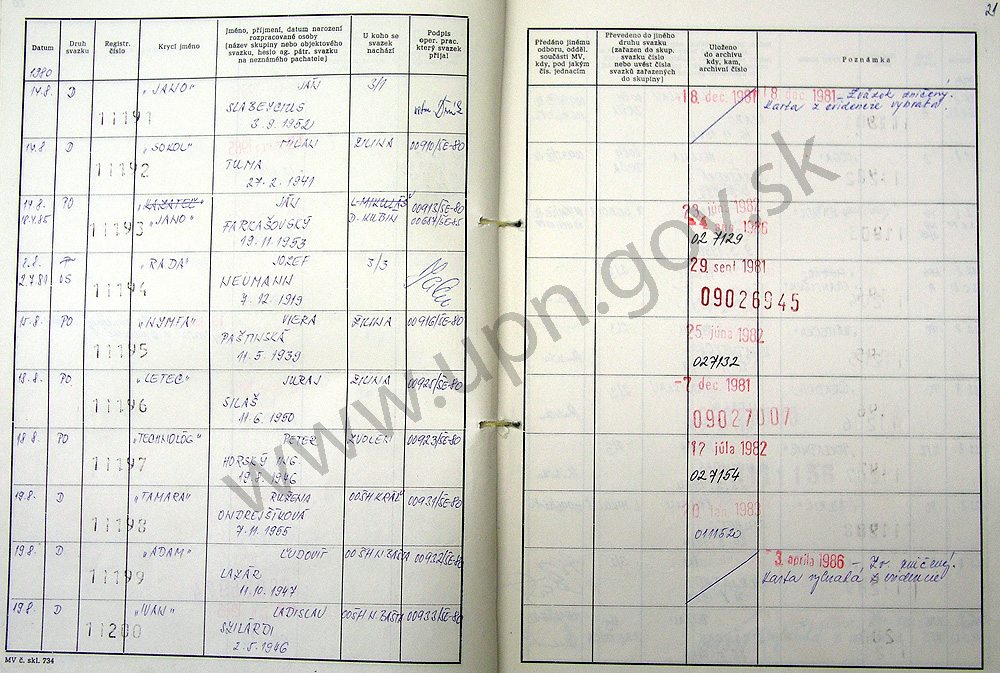 Datum
Druh svazku
Registr. číslo
Krycí jméno
Jméno, příjmení, datum narození rozpracované osoby (název skupiny nebo objektového svazku, heslo ag. pátr. svazku na neznámého pachatele)
U koho se svazek nachází
Podpis oper. prac. který svazek přijal
1980
14.8. D 11191 „JANO" JÁN 3/1
3.9.1952
14.8. D 11192 „SOKOL" MILAN ŽILINA 00910/ŠE-80
TUMA
27.2.1941
14.8. PO 11193 JÁN L-MIKULÁŠ 00913/ŠE-80
18.4.85 „JANO" FARKAŠOVSKÝ D.KUBÍN
19.11.1953
8.8. 11194 „RADA" JOZEF 3/3
2.7.81 NEUMANN
7.12.1919
15.8. PO 11195 „NYMFA" VIERA ŽILINA 00916/ŠE-80
PAŠTINSKÁ
11.5.1939
18.8. PO 11196 „LETEC" JURAJ ŽILINA 00925/ŠE-80
SILAŠ
11.6.1950
18.8. PO 11197 „TECHNOLÓG" PETER ZVOLEN 00923/ŠE-80
HORSKÝ ING.
19.8.1946
19.8. D 11198 „TAMARA" RUŽENA OOŠH KRÁĽ 00931/ŠE-80
ONDREJŠÍKOVÁ
7.11.1955
19.8. D 11199 „ADAM" ĽUDOVÍT OOŠH N.BAŠTA 00932/ŠE-80
LAZÁR
11.10.1947
19.8. D 11200 „IVAN" LADISLAV OOŠH N.BAŠTA 00933/ŠE-80
SZILÁRDI
2.5.1946
MV č. skl. 734
21
Předáno jinému odboru, odděl. součásti MV, kdy, pod jakým čís. jednacím
Převedeno do jiného druhu svazku (zařazen do skup. svazku číslo nebo uvést čísla svazků zařazených do skupiny)
Uloženo do archivu kdy, kam, archivní číslo
Poznámka
18. dec. 1981 18. dec. 1981 - Zväzok zničený.
Karta z evidencie vybratá.
23. júna 1982
027129
29. sent 1981
09026945
25. júna 1982
027132
-7 dec. 1981
09027007
12 júla 1982
027154
20 jan. 1983
0111520
-3. apríla 1986 - Zv. zničený!
Karta vybratá z evidencie
www.upn.gov.sk